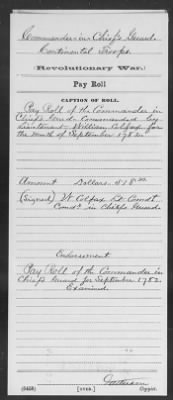 Commander-in-Chief's Guard
Continental Troops.
Revolutionary War.
Pay Roll
CAPTION OF ROLL.
Pay Roll of the Commander in
Chief's Guard Commanded by
Lieutenant William Colfax for
the month of September 1782.
Amount Dollars 518
(Signed) W. Colfax Lt Comdt
Comdr in Chiefs Guard
Endorsement
Pay Roll of the Commander in
Chief's Guard for September 1782.
Examined
(545b) [OVER.] Copyist.